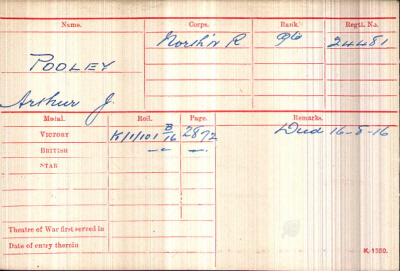 Name. Corps. Rank. Regtl. No.
POOLEY North'n R Pte 24481
Arthur J.
Medal. Roll. Page. Remarks.
VICTORY K/1/101 B/16 2872 Died 16-8-16
BRITISH -"- -"-
STAR
Theatre of War first served in
Date of entry therein
K. 1380.